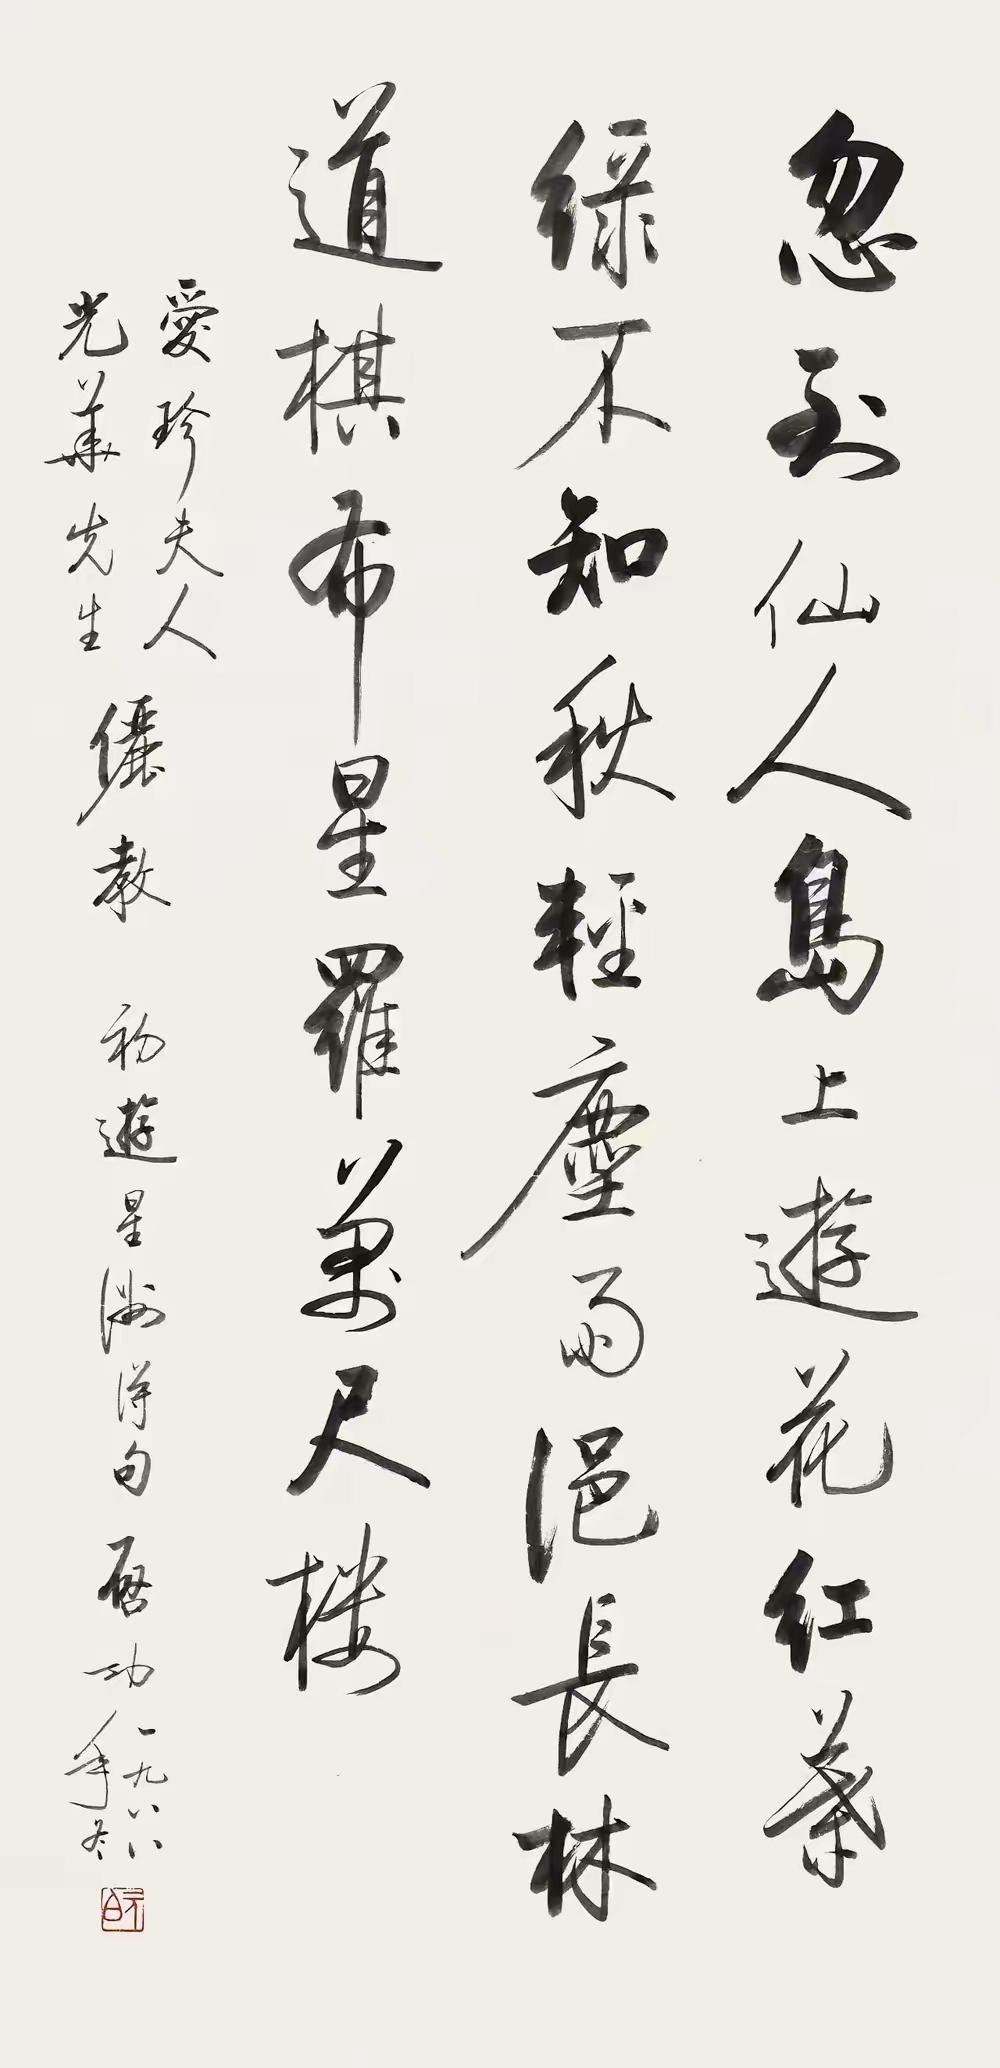 忽到仙人島上遊花紅葉
綠不知秋輕塵雨浥長林
道棋布星羅萬尺樓
愛珍夫人
光華先生
儷教
初遊星洲得句
啟功
一九八八
年冬